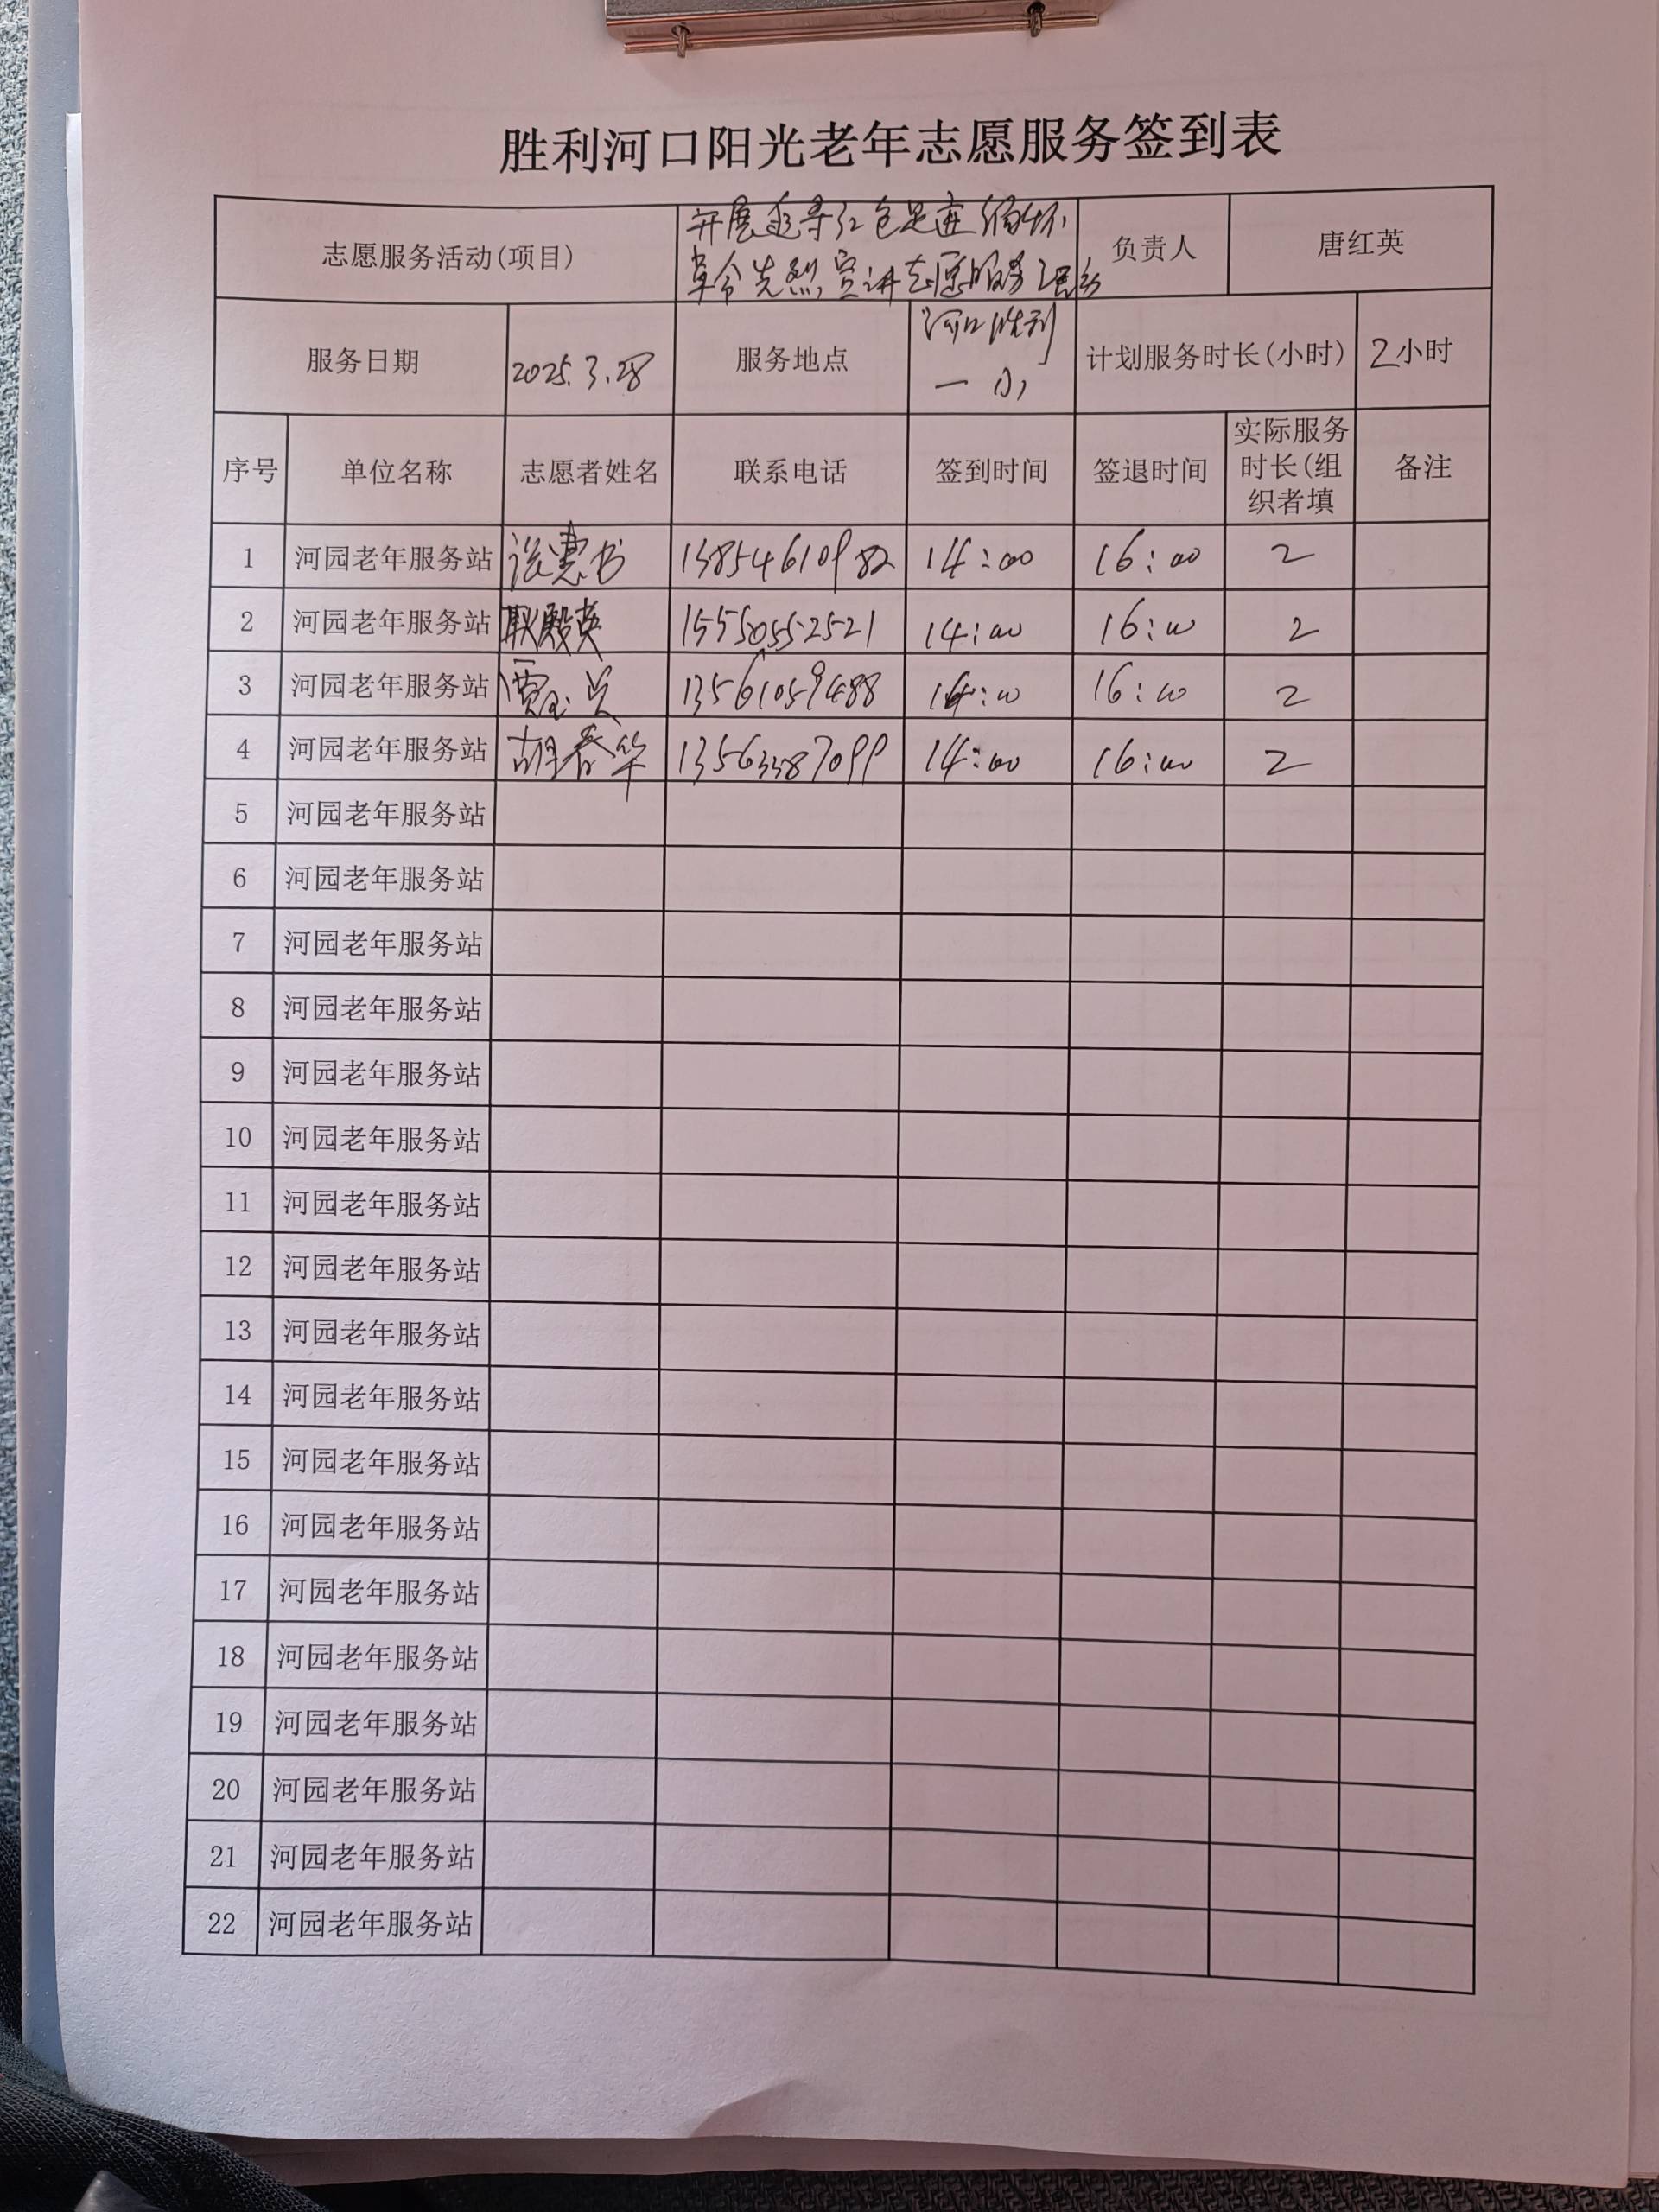 胜利河口阳光老年志愿服务签到表
志愿服务活动(项目) 开展追寻红色足迹缅怀 负责人 唐红英
革命先烈,宣讲志愿服务活动
服务日期 2025.3.28 服务地点 河口胜利 计划服务时长(小时) 2小时
一小
序号 单位名称 志愿者姓名 联系电话 签到时间 签退时间 实际服务 备注
时长(组
织者填
1 河园老年服务站 13854610982 14:00 16:00 2
2 河园老年服务站 耿殿英 15550552521 14:00 16:00 2
3 河园老年服务站 13561059488 14:00 16:00 2
4 河园老年服务站 胡春华 13563387099 14:00 16:00 2
5 河园老年服务站
6 河园老年服务站
7 河园老年服务站
8 河园老年服务站
9 河园老年服务站
10 河园老年服务站
11 河园老年服务站
12 河园老年服务站
13 河园老年服务站
14 河园老年服务站
15 河园老年服务站
16 河园老年服务站
17 河园老年服务站
18 河园老年服务站
19 河园老年服务站
20 河园老年服务站
21 河园老年服务站
22 河园老年服务站